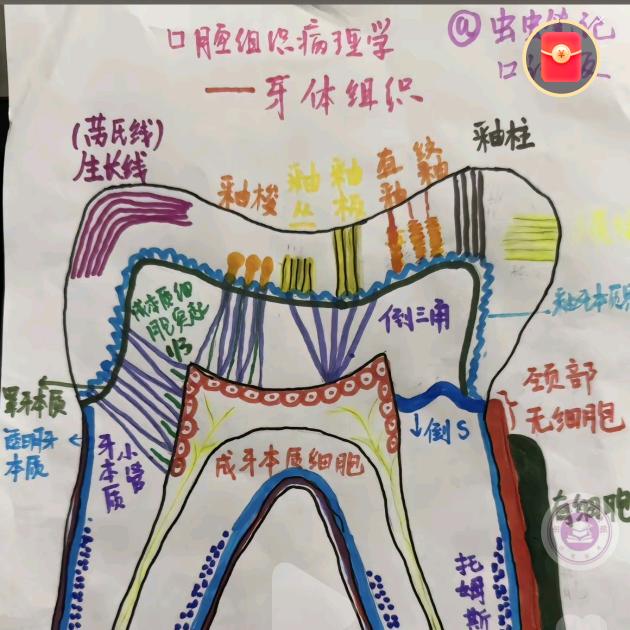 口腔组织病理学
一牙体组织
(芮氏线)
生长线
釉梭
釉丛
釉板
直釉
绞釉
釉柱
成牙本质细
胞突起
1/3
倒三角
罩牙本质
透明牙
本质
牙本质
小管
↓倒S
颈部
无细胞
有细胞
成牙本质细胞
托姆斯